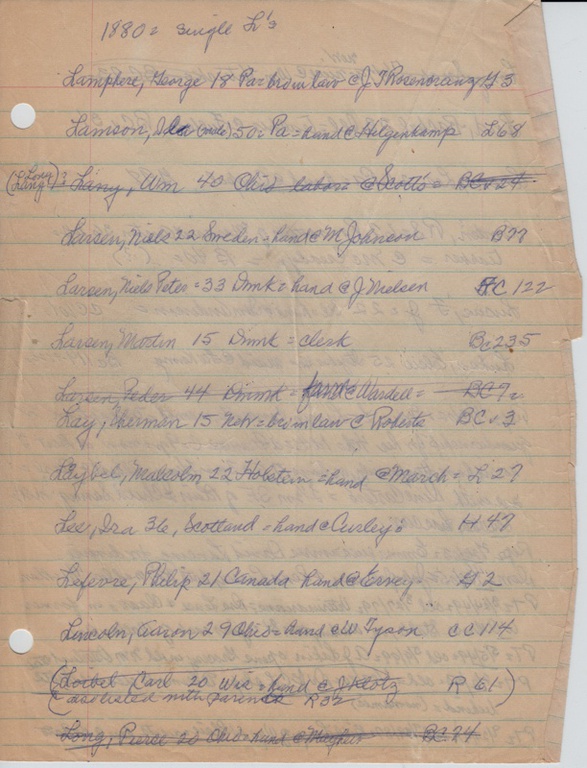 1880 = single L's
Lamphere, George 18 Pa = bro in law @ J T Rosencrang G 3
Lamson, Ida 50 = Pa = hand @ Hilgenkamp L 68
(Long Lang) ? Lany, Wm 40 Ohio labor @ Scotts = BC 24
Larsen, Niels 22 Sweden = hand @ M Johnson B 77
Larsen, Niels Peter = 33 Dnmk = hand @ J Nielsen HC 122
Larsen, Martin 15 Dnmk = clerk Bc 235
Larsen, Peder 44 Dnmk = farm @ Wardell = BC 92
Lay, Sherman 15 Nebr = bro in law @ Roberts BC 3
Malcolm 22 Holstein = hand @ March = L 27
Lee, Ira 36, Scotland = hand @ Curley = H 47
Lefevre, Philip 21 Canada hand @ Ervey = G 2
Lincoln, Aaron 29 Ohio = hand @ W Tyson CC 114
(Loebel Carl 20 Wis = hand @ J Klotz R 61)
(also listed with parents R 32
Long, Pierce 20 Ohio = hand @ BC 24